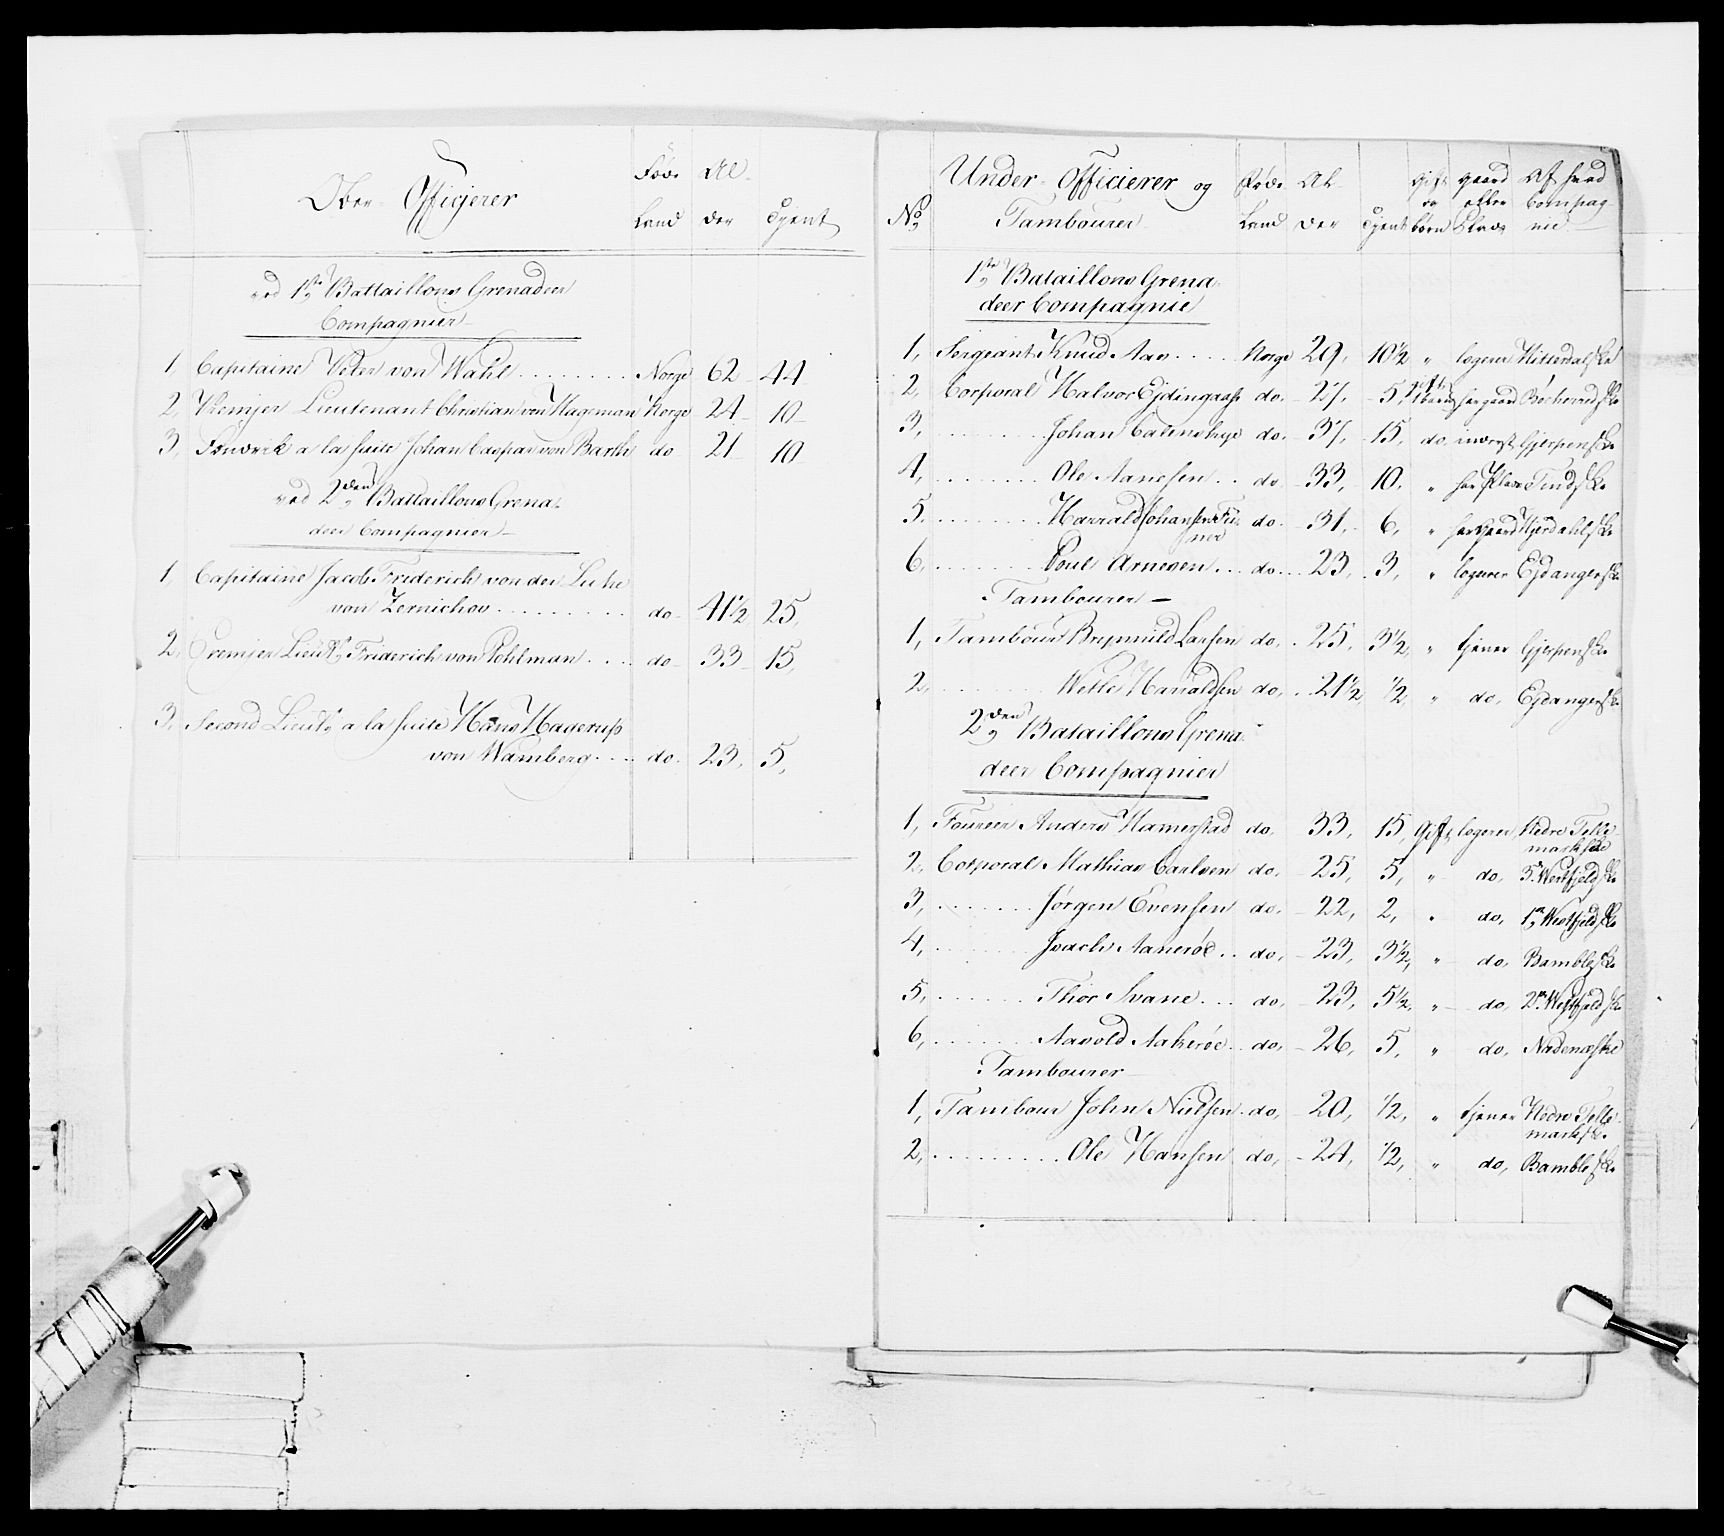 Ober- Officjerer
Føde Land
Al- der
Tjent
ved 1ste Battaillons Grenadeer
Compagnier
1, Capitaine Peter von Wahl ........ Norge 62 44
2, Premjer Lieutenant Christian von Hageman Norge 24 10
3, Fendrik a la suite Johan Caspar von Barth do 21 10
ved 2den Battaillons Grena-
deer Compagnier
1, Capitaine Jacob Friderich von der Luhe
von Zernichov ......... do 41½ 25,
2, Premjer Lieut: Friderich von Pohlman .... do 33 15,
3, Second Lieut: a la suite Hans Hagerup
von Wamberg .... do. 23, 5,
No
Under- Officierer og
Tambourer
Føde Land
Al- der
Tjent
Gift og børn
gaard eller Plads
Af hvad Compag- nie
1ste Bataillons Grena-
deer Compagnie
1, Sergeant Knud Aas ..... Norge 29, 10½ " logerer Hitterdalske
2, Corporal Halvor Ejdingaas do. 27, 5, har gaard Bøeherredske
3, ........ Johan do. 37, 15, do inderst Gjerpenske
4, ........ Ole Aanesen .. do 33, 10, " har Plads Tindske
5, ........ Harrald Johansen do. 31, 6, " har gaard Hjerdahlske
6, ........ Poul Arnesen ... do. 23, 3, " logerer Ejdangerske
Tambourer
1, Tambour Brynnild Larsen do. 25, 3½, " tjener Gjerpenske
2, ........ Wetle Harraldsen do, 21½, ½, " do, Ejdangerske
2den Bataillons Grena-
deer Compagnier
1, Foureer Anders Hamerstad do. 33, 15, Gift logerer Nedre Telle-
markske
2, Corporal Mathias Carlsen do. 25, 5, " do, 3. Westfjeldske
3, ........ Jørgen Evensen do. 22, 2, " do, 1ste Westfjeldske
4, ........ Isach Aanerøe .. do, 23, 3½, " do, Bambleske
5, ........ Thor Svane ... do, 23, 5½, " do, 2. Westfjeldske
6, ........ Aavold Aakerøe .. do, 26, 5, " do, Nædenæske
Tambourer
1, Tambour John Nielsen do, 20, ½, " tjener Nedre Telle-
markske
2, ........ Ole Hansen do, 24, ½, " do, Bambleske